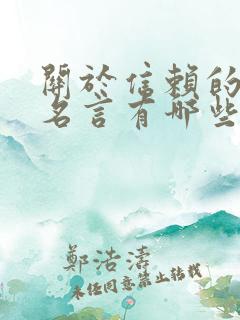 關於信賴的
名言有哪些
鄭浩濤
未經同意禁止轉載